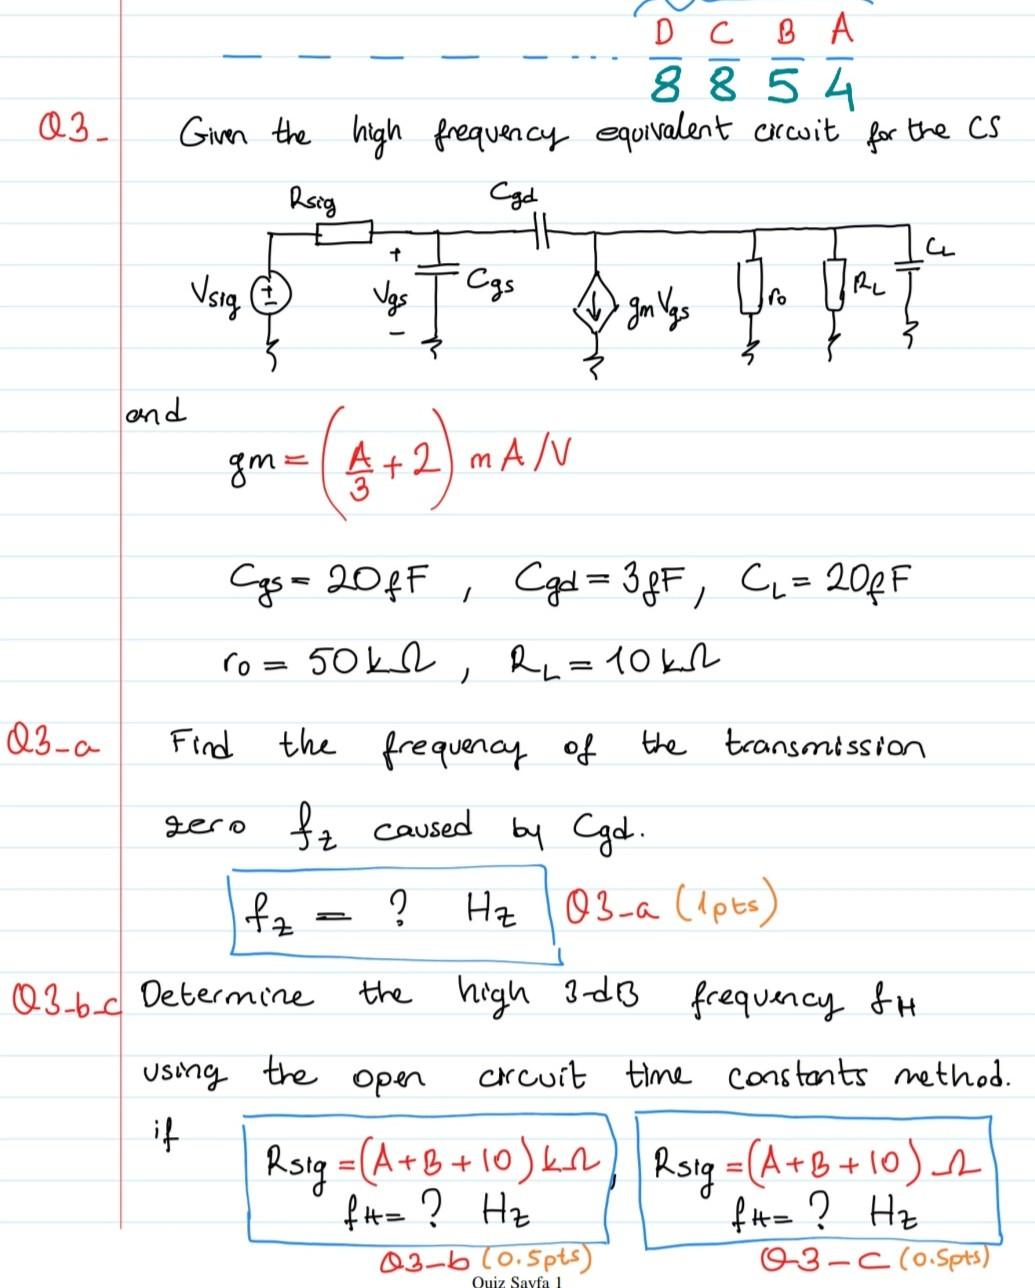 D C B A
8 8 5 4
Q3- Given the high frequency equivalent circuit for the CS
Rsig Cgd
Vsig + Vgs - Cgs gmVgs ro RL CL
and
gm = (A/3 + 2) mA/V
Cgs = 20fF , Cgd = 3fF, CL = 20fF
ro = 50kΩ , RL = 10kΩ
Q3-a Find the frequency of the transmission
zero fz caused by Cgd.
fz = ? Hz Q3-a (1pts)
Q3-b-c Determine the high 3-dB frequency fH
using the open circuit time constants method.
if Rsig = (A+B+10) kΩ , Rsig = (A+B+10) Ω
fH = ? Hz fH = ? Hz
Q3-b (0.5pts) Q-3-c (0.5pts)
Quiz Sayfa 1